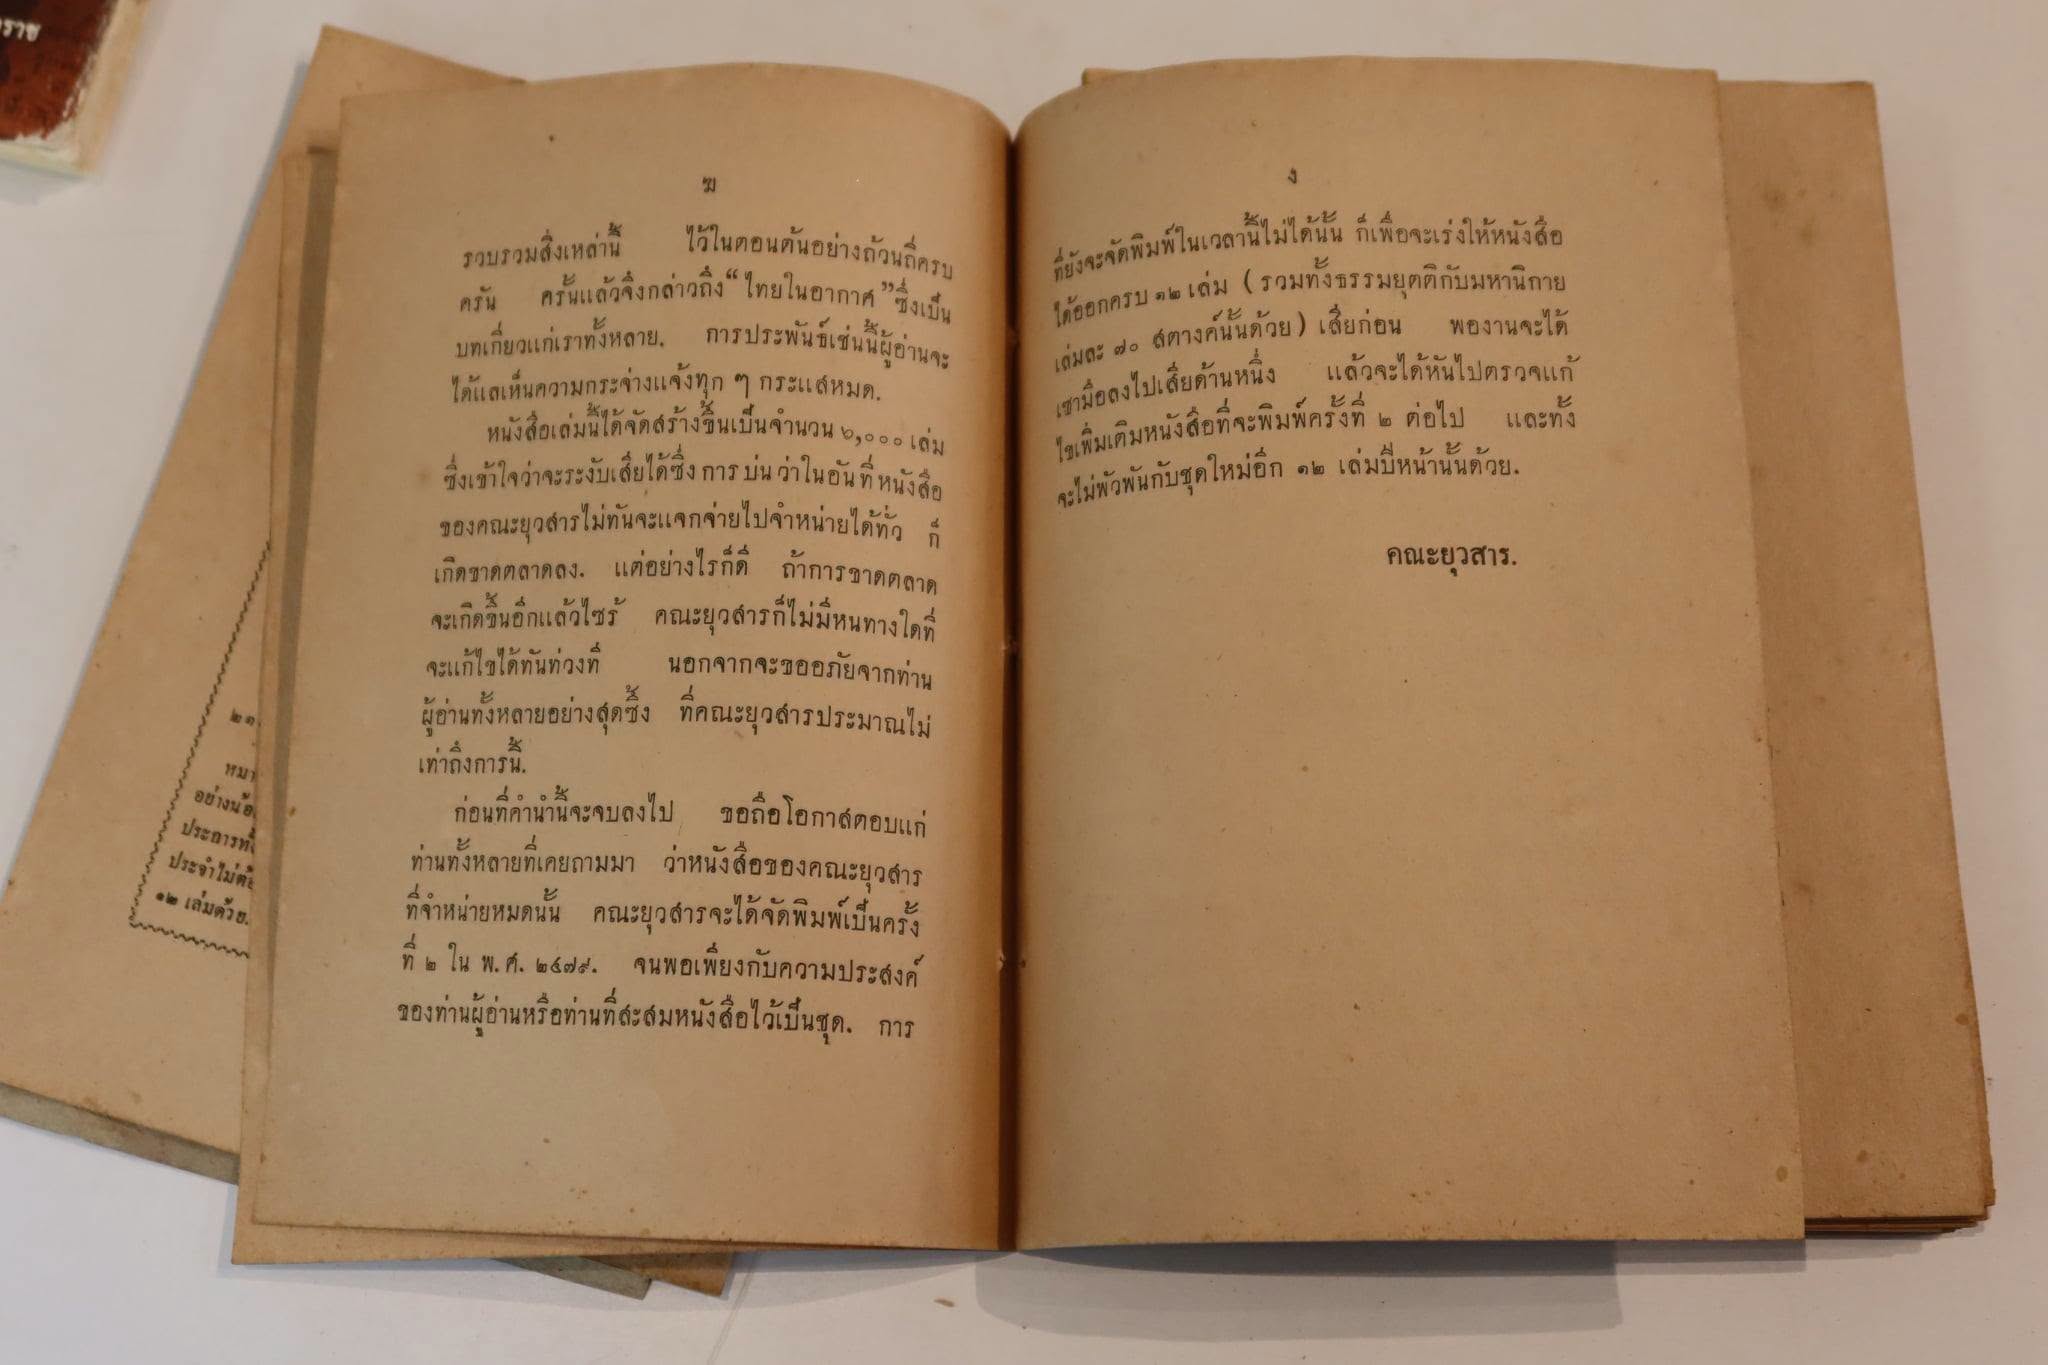 ราช
๒๑
หมา
อย่างน้อ
ประการที่
ประจำไม่ต้อ
๑๒ เล่มด้วย.
ฆ
รวบรวมสิ่งเหล่านี้ ไว้ในตอนต้นอย่างถ้วนถี่ครบ
ครัน ครั้นแล้วจึงกล่าวถึง “ไทยในอากาศ” ซึ่งเป็น
บทเกี่ยวแก่เราทั้งหลาย. การประพันธ์เช่นนี้ผู้อ่านจะ
ได้แลเห็นความกระจ่างแจ้งทุก ๆ กระแสหมด.
หนังสือเล่มนี้ได้จัดสร้างขึ้นเป็นจำนวน ๖,๐๐๐ เล่ม
ซึ่งเข้าใจว่าจะระงับเสียได้ซึ่ง การ บ่น ว่าในอันที่ หนังสือ
ของคณะยุวสารไม่ทันจะแจกจ่ายไปจำหน่ายได้ทั่ว ก็
เกิดขาดตลาดลง. แต่อย่างไรก็ดี ถ้าการขาดตลาด
จะเกิดขึ้นอีกแล้วไซร้ คณะยุวสารก็ไม่มีหนทางใดที่
จะแก้ไขได้ทันท่วงที นอกจากจะขออภัยจากท่าน
ผู้อ่านทั้งหลายอย่างสุดซึ้ง ที่คณะยุวสารประมาณไม่
เท่าถึงการนี้.
ก่อนที่คำนำนี้จะจบลงไป ขอถือโอกาสตอบแก่
ท่านทั้งหลายที่เคยถามมา ว่าหนังสือของคณะยุวสาร
ที่จำหน่ายหมดนั้น คณะยุวสารจะได้จัดพิมพ์เป็นครั้ง
ที่ ๒ ใน พ. ศ. ๒๔๗๙. จนพอเพียงกับความประสงค์
ของท่านผู้อ่านหรือท่านที่สะสมหนังสือไว้เป็นชุด. การ
ง
ที่ยังจะจัดพิมพ์ในเวลานี้ไม่ได้นั้น ก็เพื่อจะเร่งให้หนังสือ
ได้ออกครบ ๑๒ เล่ม (รวมทั้งธรรมยุตติกับมหานิกาย
เล่มละ ๗๐ สตางค์นั้นด้วย) เสียก่อน พองานจะได้
เซามือลงไปเสียด้านหนึ่ง แล้วจะได้หันไปตรวจแก้
ไขเพิ่มเติมหนังสือที่จะพิมพ์ครั้งที่ ๒ ต่อไป และทั้ง
จะไม่พัวพันกับชุดใหม่อีก ๑๒ เล่มปีหน้านั้นด้วย.
คณะยุวสาร.